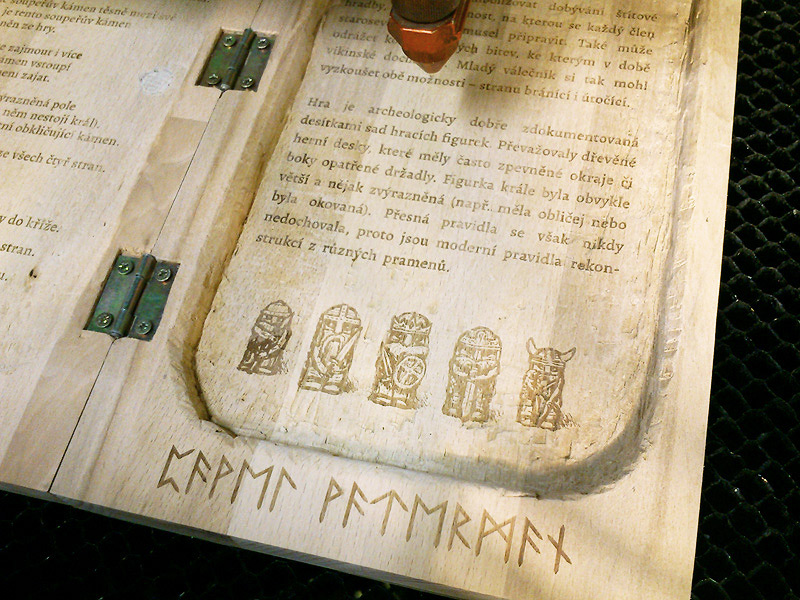 soupeřův kámen těsně mezi své
je tento soupeřův kámen
ze hry.
zajmout i více
vstoupí
zajat.
pole
něm nestojí král).
obkličující kámen.
ze všech čtyř stran.
do kříže.
stran.
dobývání štítové
hradby. na kterou se každý člen
musel připravit. Také může
odrážet bitev, ke kterým v době
vikinské Mladý válečník si tak mohl
vyzkoušet obě možnosti – stranu bránící i útočící.
Hra je archeologicky dobře zdokumentovaná
desítkami sad hracích figurek. Převažovaly dřevěné
herní desky, které měly často zpevněné okraje či
boky opatřené držadly. Figurka krále byla obvykle
větší a nějak zvýrazněná (např. měla obličej nebo
byla okovaná). Přesná pravidla se však nikdy
nedochovala, proto jsou moderní pravidla rekon-
strukcí z různých pramenů.
ᛈᚨᚹᛖᛚ ᚹᚨᛏᛖᚱᛗᚨᚾ